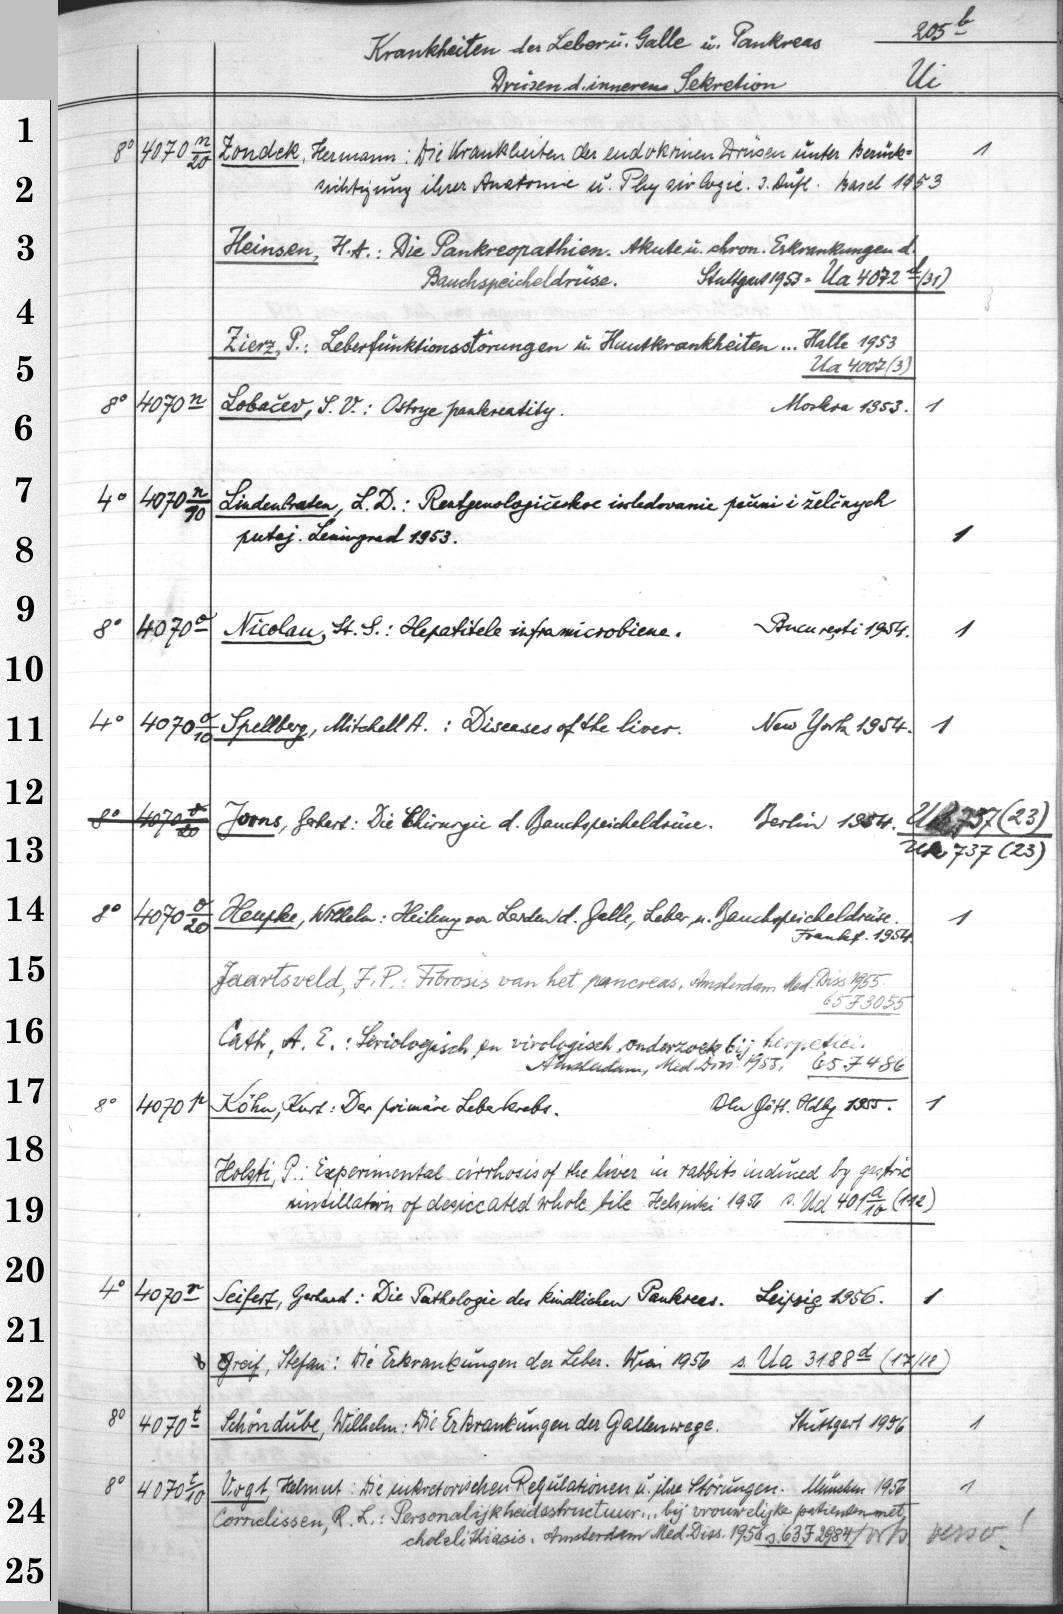 205 b
Krankheiten der Leber u. Galle u. Pankreas
Drüsen d. inneren Sekretion Ui
1
8° 4070 n/20 Zondek, Hermann: Die Krankheiten der endokrinen Drüsen unter Berück= 1
2
sichtigung ihrer Anatomie u. Physiologie. 3. Aufl. Basel 1953
3
Heinsen, H.A.: Die Pankreopathien. Akute u. chron. Erkrankungen d.
Bauchspeicheldrüse. Stuttgart 1953 = Ua 4072 d/(31)
4
Zierz, P.: Leberfunktionsstörungen u. Hautkrankheiten ... Halle 1953
5
Ua 4007 (3)
8° 4070 n Lobačev, S. V.: Ostrye pankreatity. Moskva 1953. 1
6
7
4° 4070 n/90 Lindenbraten, L.D.: Rentgenologičeskoe issledovanie pečeni i želčnych
8
putej. Leningrad 1953. 1
9
8° 4070 o Nicolau, St. S.: Hepatitele inframicrobiene. București 1954. 1
10
11
4° 4070 o/10 Spellberg, Mitchell A.: Diseases of the liver. New York 1954. 1
12
8° 4070 o/20 Joons, Gerhert: Die Chirurgie d. Bauchspeicheldrüse. Berlin 1954. 737 (23)
13
737 (23)
14
8° 4070 o/20 Heupke, Wilhelm: Heilung von Leiden d. Galle, Leber, u. Bauchspeicheldrüse. 1
Frankf. 1954.
15
Jaartsveld, F. P.: Fibrosis van het pancreas. Amsterdam Med. Diss 1955.
65 F 3055
16
Cath, A. E.: Seriologisch en virologisch onderzoek bij herpetici.
Amsterdam, Med. Diss. 1955. 65 F 486
17
8° 4070 p Köhn, Kurt: Der primäre Leberkrebs. Bln Gött. Hdbg 1955. 1
18
Holsti, P.: Experimental cirrhosis of the liver in rabbits induced by gastric
19
instillation of desiccated whole bile Helsinki 1956 s. Ud 401 a/10 (112)
20
4° 4070 r Seifert, Gerhard: Die Pathologie des kindlichen Pankreas. Leipzig 1956. 1
21
Greif, Stefan: Die Erkrankungen der Leber. Wien 1956 s. Ua 3188 d (17/18)
22
8° 4070 t Schöndube, Wilhelm: Die Erkrankungen der Gallenwege. Stuttgart 1956 1
23
8° 4070 t/10 Vogt, Helmut: Die inkretorischen Regulationen u. ihre Störungen. München 1956 1
24
Cornelissen, R. L.: Personalijkheidsstructuur... bij vrouwelijke patienten met
cholelithiasis. Amsterdam Med. Diss. 1956 s. 63 F 2984 verso!
25